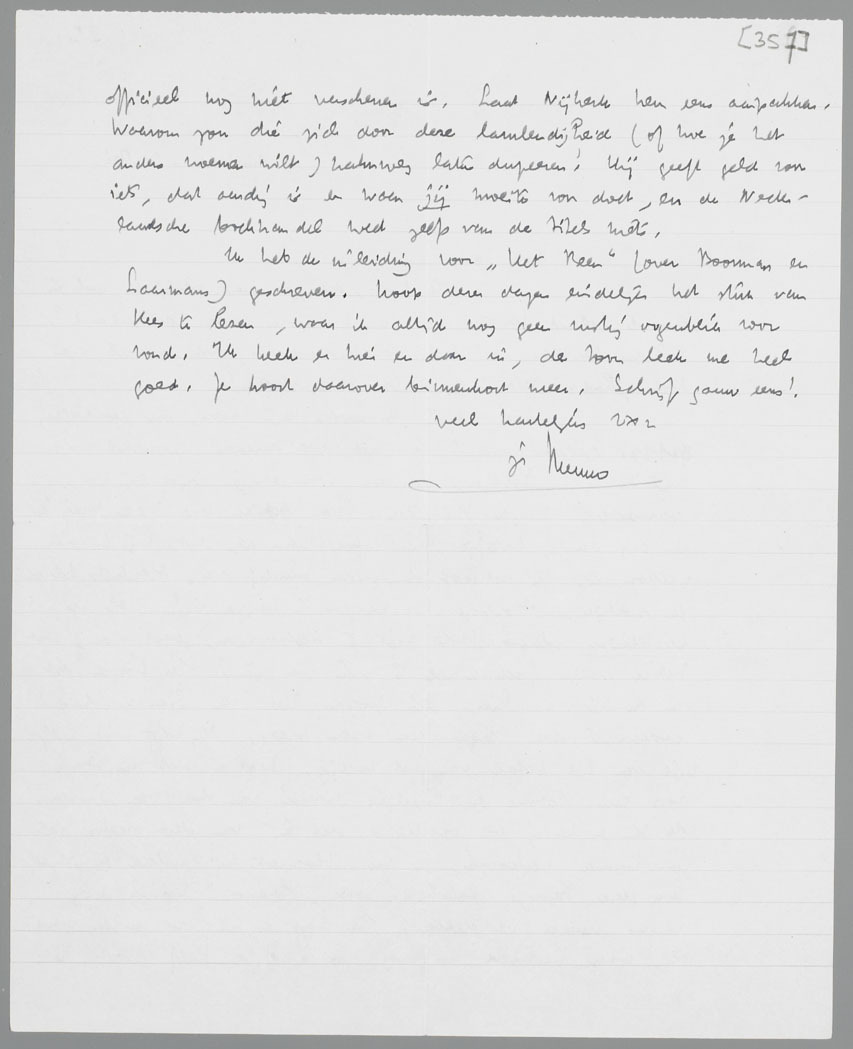 [357]
officieel nog niét verschenen is. Laat Nijhoff hem eens aanpakken.
Waarom zou die zich door deze lamlendigheid (of hoe je het
anders noemen wilt) halverweg laten duperen! Hij geeft geld voor
iets, dat aardig is en waar jij moeite voor doet, en de Neder-
landsche boekhandel weet zelfs van de titels niets.
Ik heb de inleiding voor „Het Been" (over Boorman en
Laarmans) geschreven. Hoop dezer dagen eindelijk het stuk van
Kees te lezen, waar ik altijd nog geen rustig oogenblik voor
vond. Ik keek er hier en daar in, de toon leek me heel
goed. Je hoort daarover binnenkort meer. Schrijf gauw eens!
veel hartelijks 2x2
je Menno